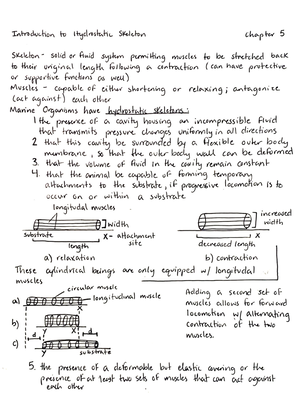 Introduction to Hydrostatic Skeleton Chapter 5
Skeleton - solid or fluid system permitting muscles to be stretched back
to their original length following a contraction (can have protective
or supportive functions as well)
Muscles - capable of either shortening or relaxing; antagonize
(act against) each other
Marine Organisms have hydrostatic skeletons:
1. the presence of a cavity housing an incompressible fluid
that transmits pressure changes uniformly in all directions
2. that this cavity be surrounded by a flexible outer body
membrane, so that the outer body wall can be deformed
3. that the volume of fluid in the cavity remain constant
4. that the animal be capable of forming temporary
attachments to the substrate, if progressive locomotion is to
occur on or within a substrate
longitudinal muscles
increased
width
width
substrate
X - attachment
site
X
length
decreased length
a) relaxation
b) contraction
These cylindrical beings are only equipped w/ longitudinal
muscles
circular muscle
longitudinal muscle
a)
X
b)
X
d
d
c)
X
substrate
Adding a second set of
muscles allows for forward
locomotion w/ alternating
contraction of the two
muscles.
5. the presence of a deformable but elastic covering or the
presence of at least two sets of muscles that can act against
each other